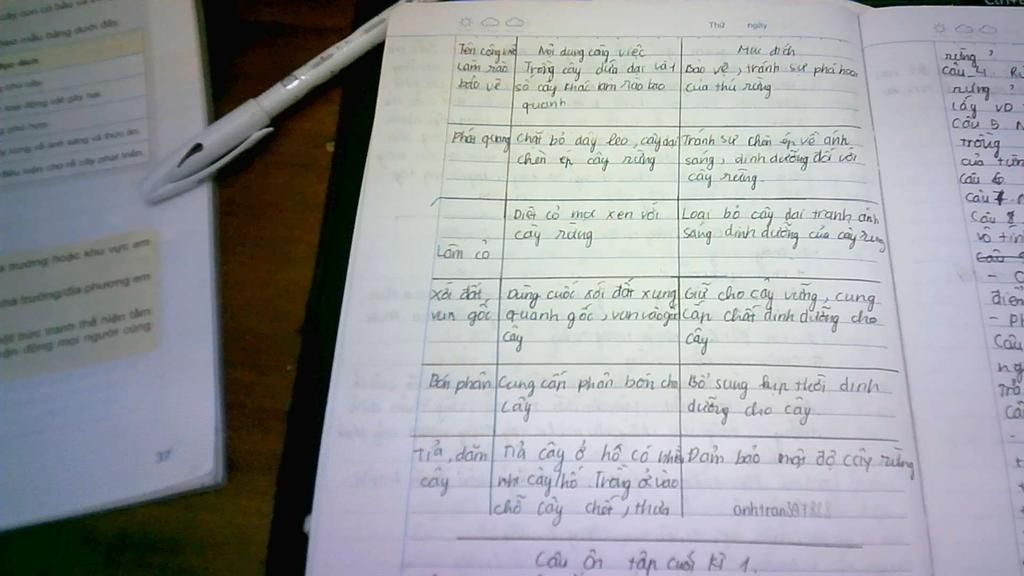 Thứ ngày
Tên công việc
Nội dung công việc
Mục đích
Làm rào
bảo vệ
Trồng cây dứa dại và 1
số cây khác làm rào bao
quanh
Bảo vệ, tránh sự phá hoại
của thú rừng
Phát quang
Chặt bỏ dây leo, cây dại
chèn ép cây rừng
Tránh sự chèn ép về ánh
sáng, dinh dưỡng đối với
cây rừng.
Làm cỏ
Diệt cỏ mọc xen với
cây rừng
Loại bỏ cây dại tranh ánh
sáng dinh dưỡng của cây rừng
Xới đất,
vun gốc
Dùng cuốc xới đất xung
quanh gốc, vun vào gốc
cây
Giữ cho cây vững, cung
cấp chất dinh dưỡng cho
cây
Bón phân
Cung cấp phân bón cho
cây
Bổ sung kịp thời dinh
dưỡng cho cây
Tỉa, dặm
cây
Tỉa cây ở hố có nhiều
cây/hố. Trồng ở vào
chỗ cây chết, thưa
Đảm bảo mật độ cây rừng
Câu ôn tập cuối kì 1.
37
trường hoặc khu vực em
nhà trường/địa phương em
một bức tranh thể hiện tấm
vận động mọi người cùng
rừng
Câu 4.
rừng
lấy
Câu 5
trồng
của
Câu 6
Câu 7.
Câu 8